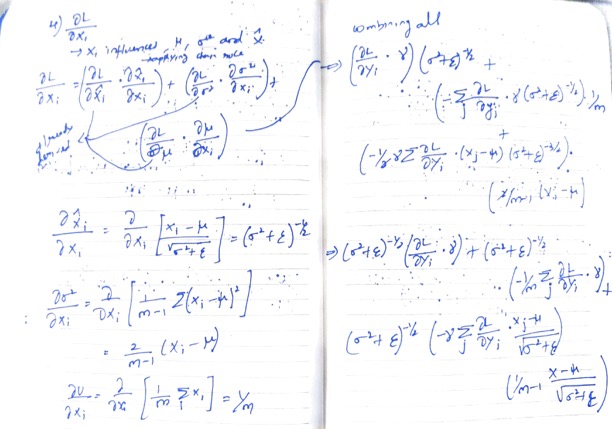 4) ∂L/∂xᵢ
→ xᵢ influences μ, σ² and x̂ᵢ
applying chain rule
∂L/∂xᵢ = (∂L/∂x̂ᵢ · ∂x̂ᵢ/∂xᵢ) + (∂L/∂σ² · ∂σ²/∂xᵢ) +
(∂L/∂μ · ∂μ/∂xᵢ)
already derived
∂x̂ᵢ/∂xᵢ = ∂/∂xᵢ [(xᵢ - μ)/√(σ²+ε)] = (σ²+ε)^(-1/2)
∂σ²/∂xᵢ = ∂/∂xᵢ [1/(m-1) Σ(xᵢ - μ)²]
= 2/(m-1) (xᵢ - μ)
∂μ/∂xᵢ = ∂/∂xᵢ [1/m Σᵢ xᵢ] = 1/m
combining all
⇒ (∂L/∂yᵢ · γ) (σ²+ε)^(-1/2) +
(-Σⱼ ∂L/∂yⱼ · γ(σ²+ε)^(-1/2)) · 1/m
+
(-1/2 γ Σ ∂L/∂yⱼ · (xⱼ-μ) (σ²+ε)^(-3/2)) ·
(xᵢ - μ)
⇒ (σ²+ε)^(-1/2) (∂L/∂yᵢ · γ) + (σ²+ε)^(-1/2)
(-1/m Σⱼ ∂L/∂yⱼ · γ) +
(σ²+ε)^(-1/2) (-γ Σⱼ ∂L/∂yⱼ · (xⱼ-μ)/√(σ²+ε))
(1/(m-1) (x-μ)/√(σ²+ε))